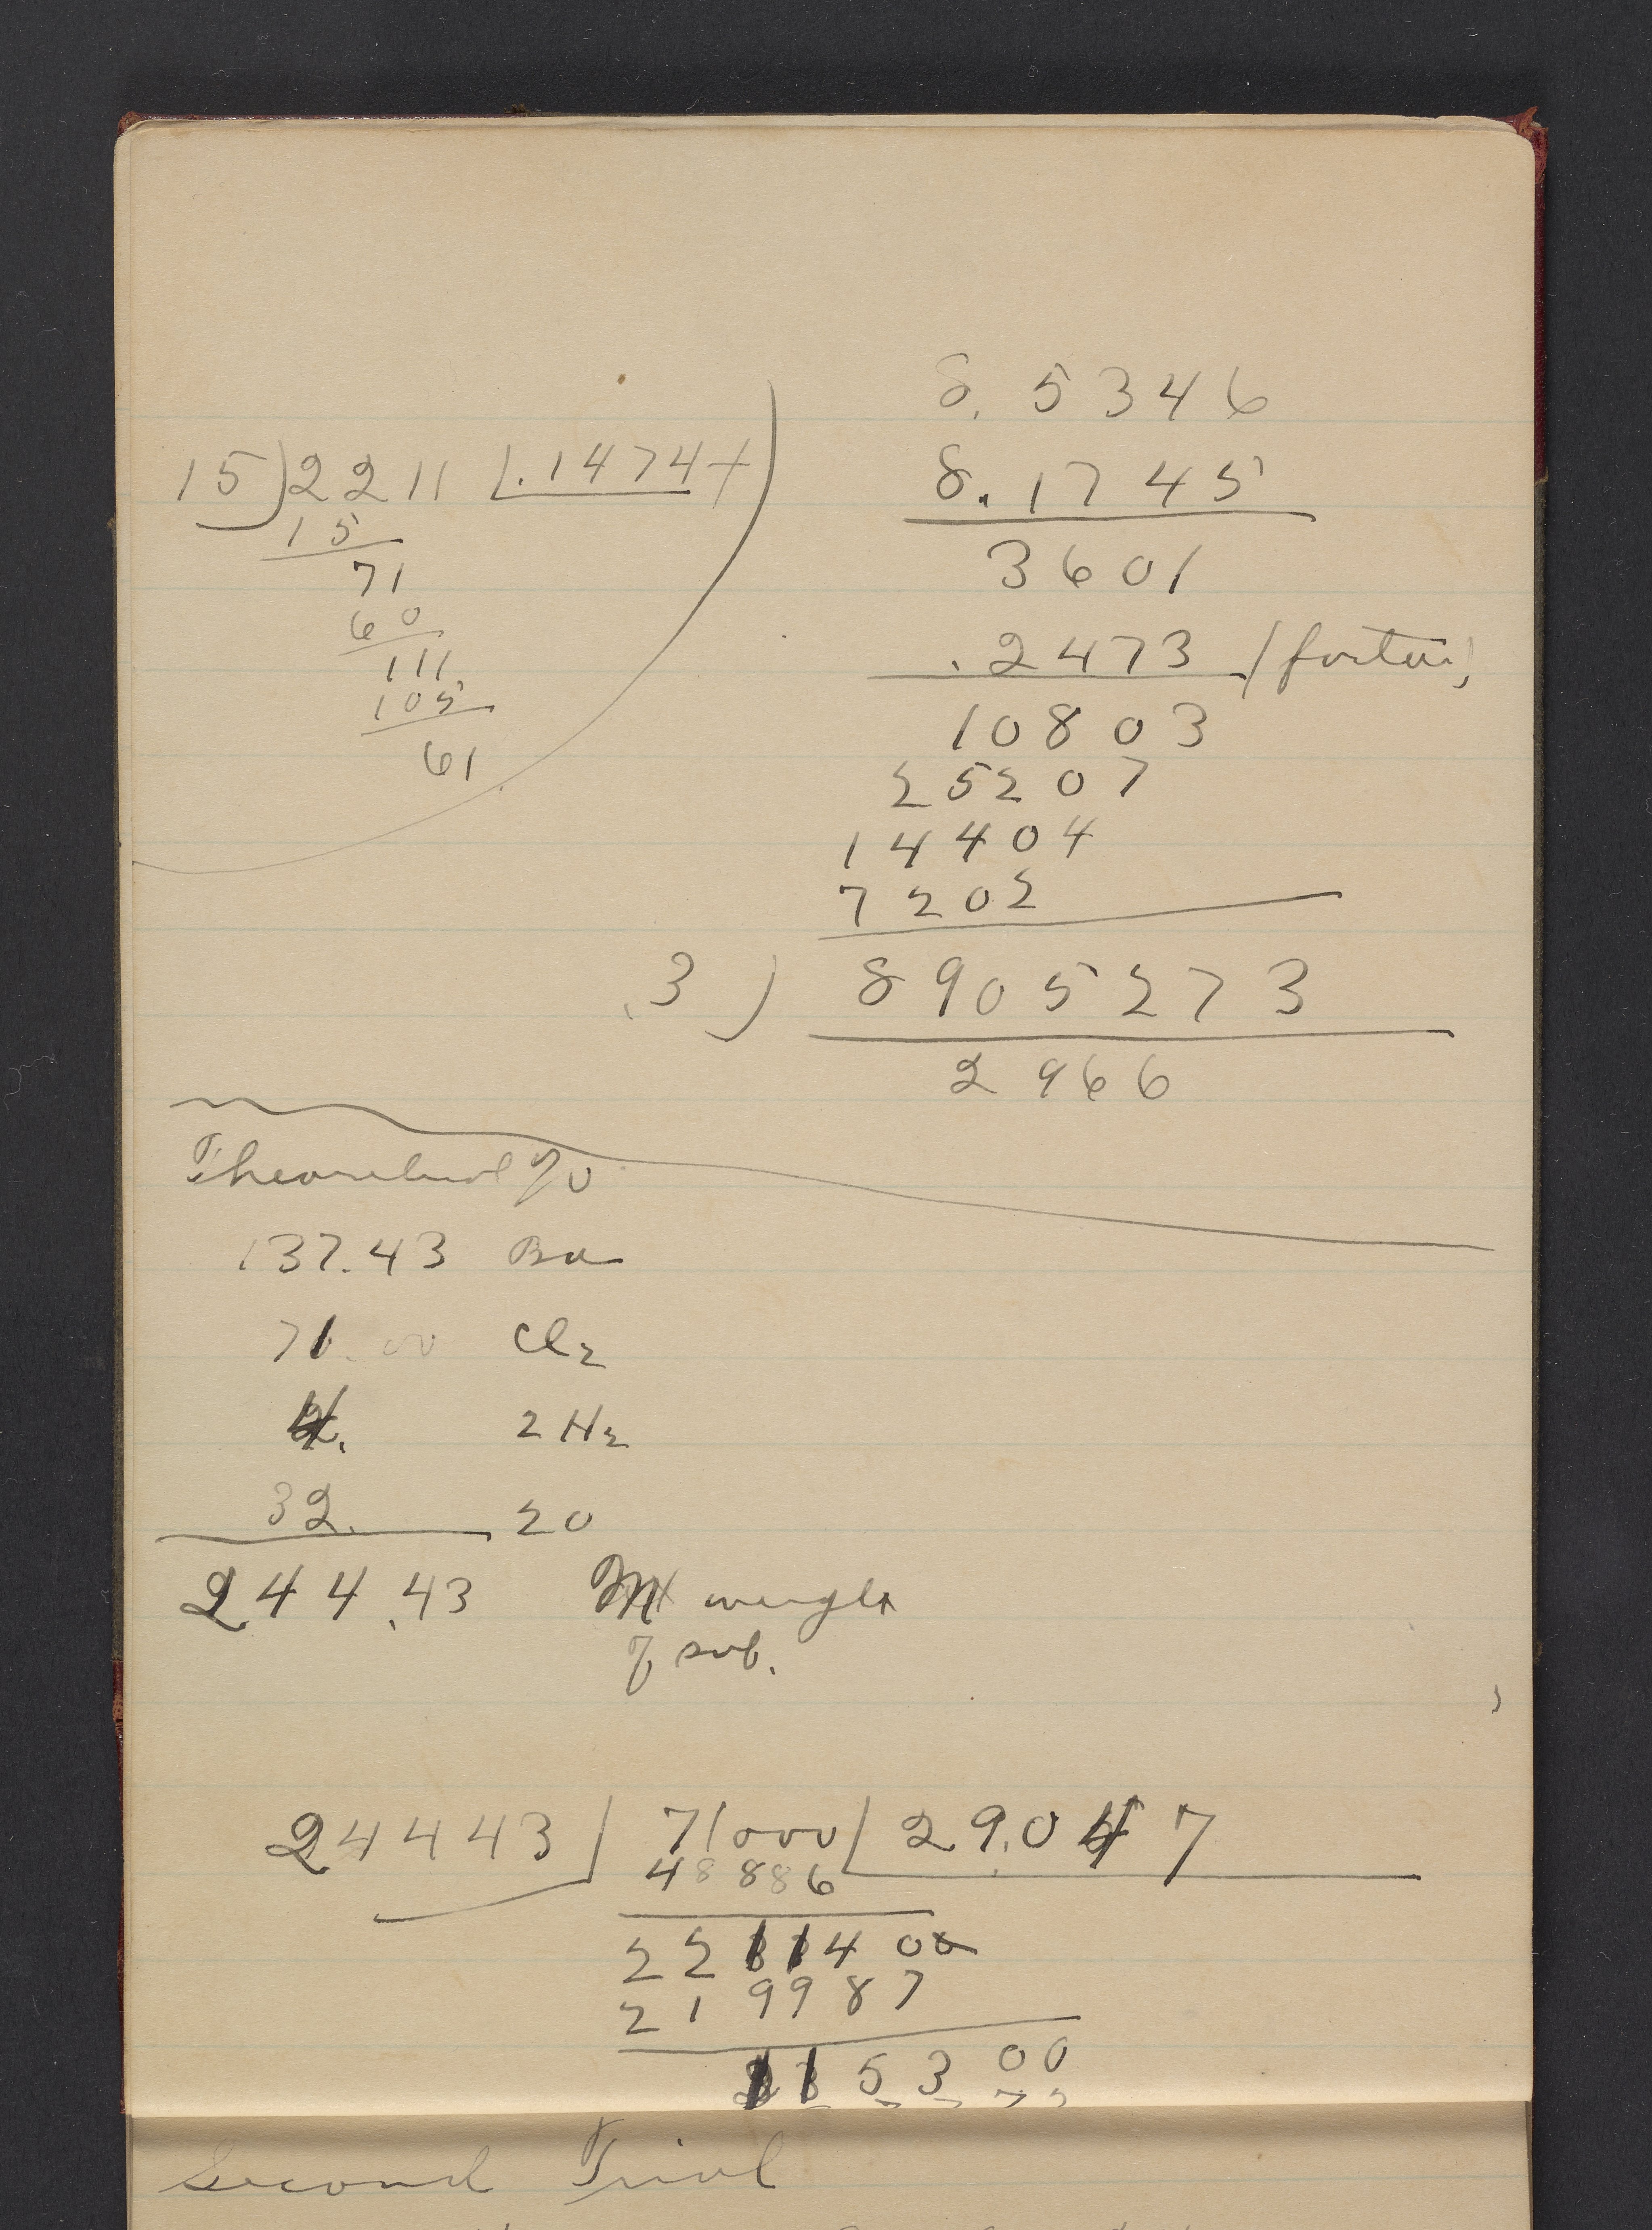 8.5346
15)2211 |.1474+
8.1745
15
3601
71
60
.2473 /factor)
111
10803
105
25207
61
14404
7202
.3) 8905273
2966
Theoretical %
137.43 Ba
71.00 Cl2
4. 2H2
32. 2O
244.43 weight
of sub.
24443 / 71000 / 29.047
48886
2211400
219987
115300
Second Trial